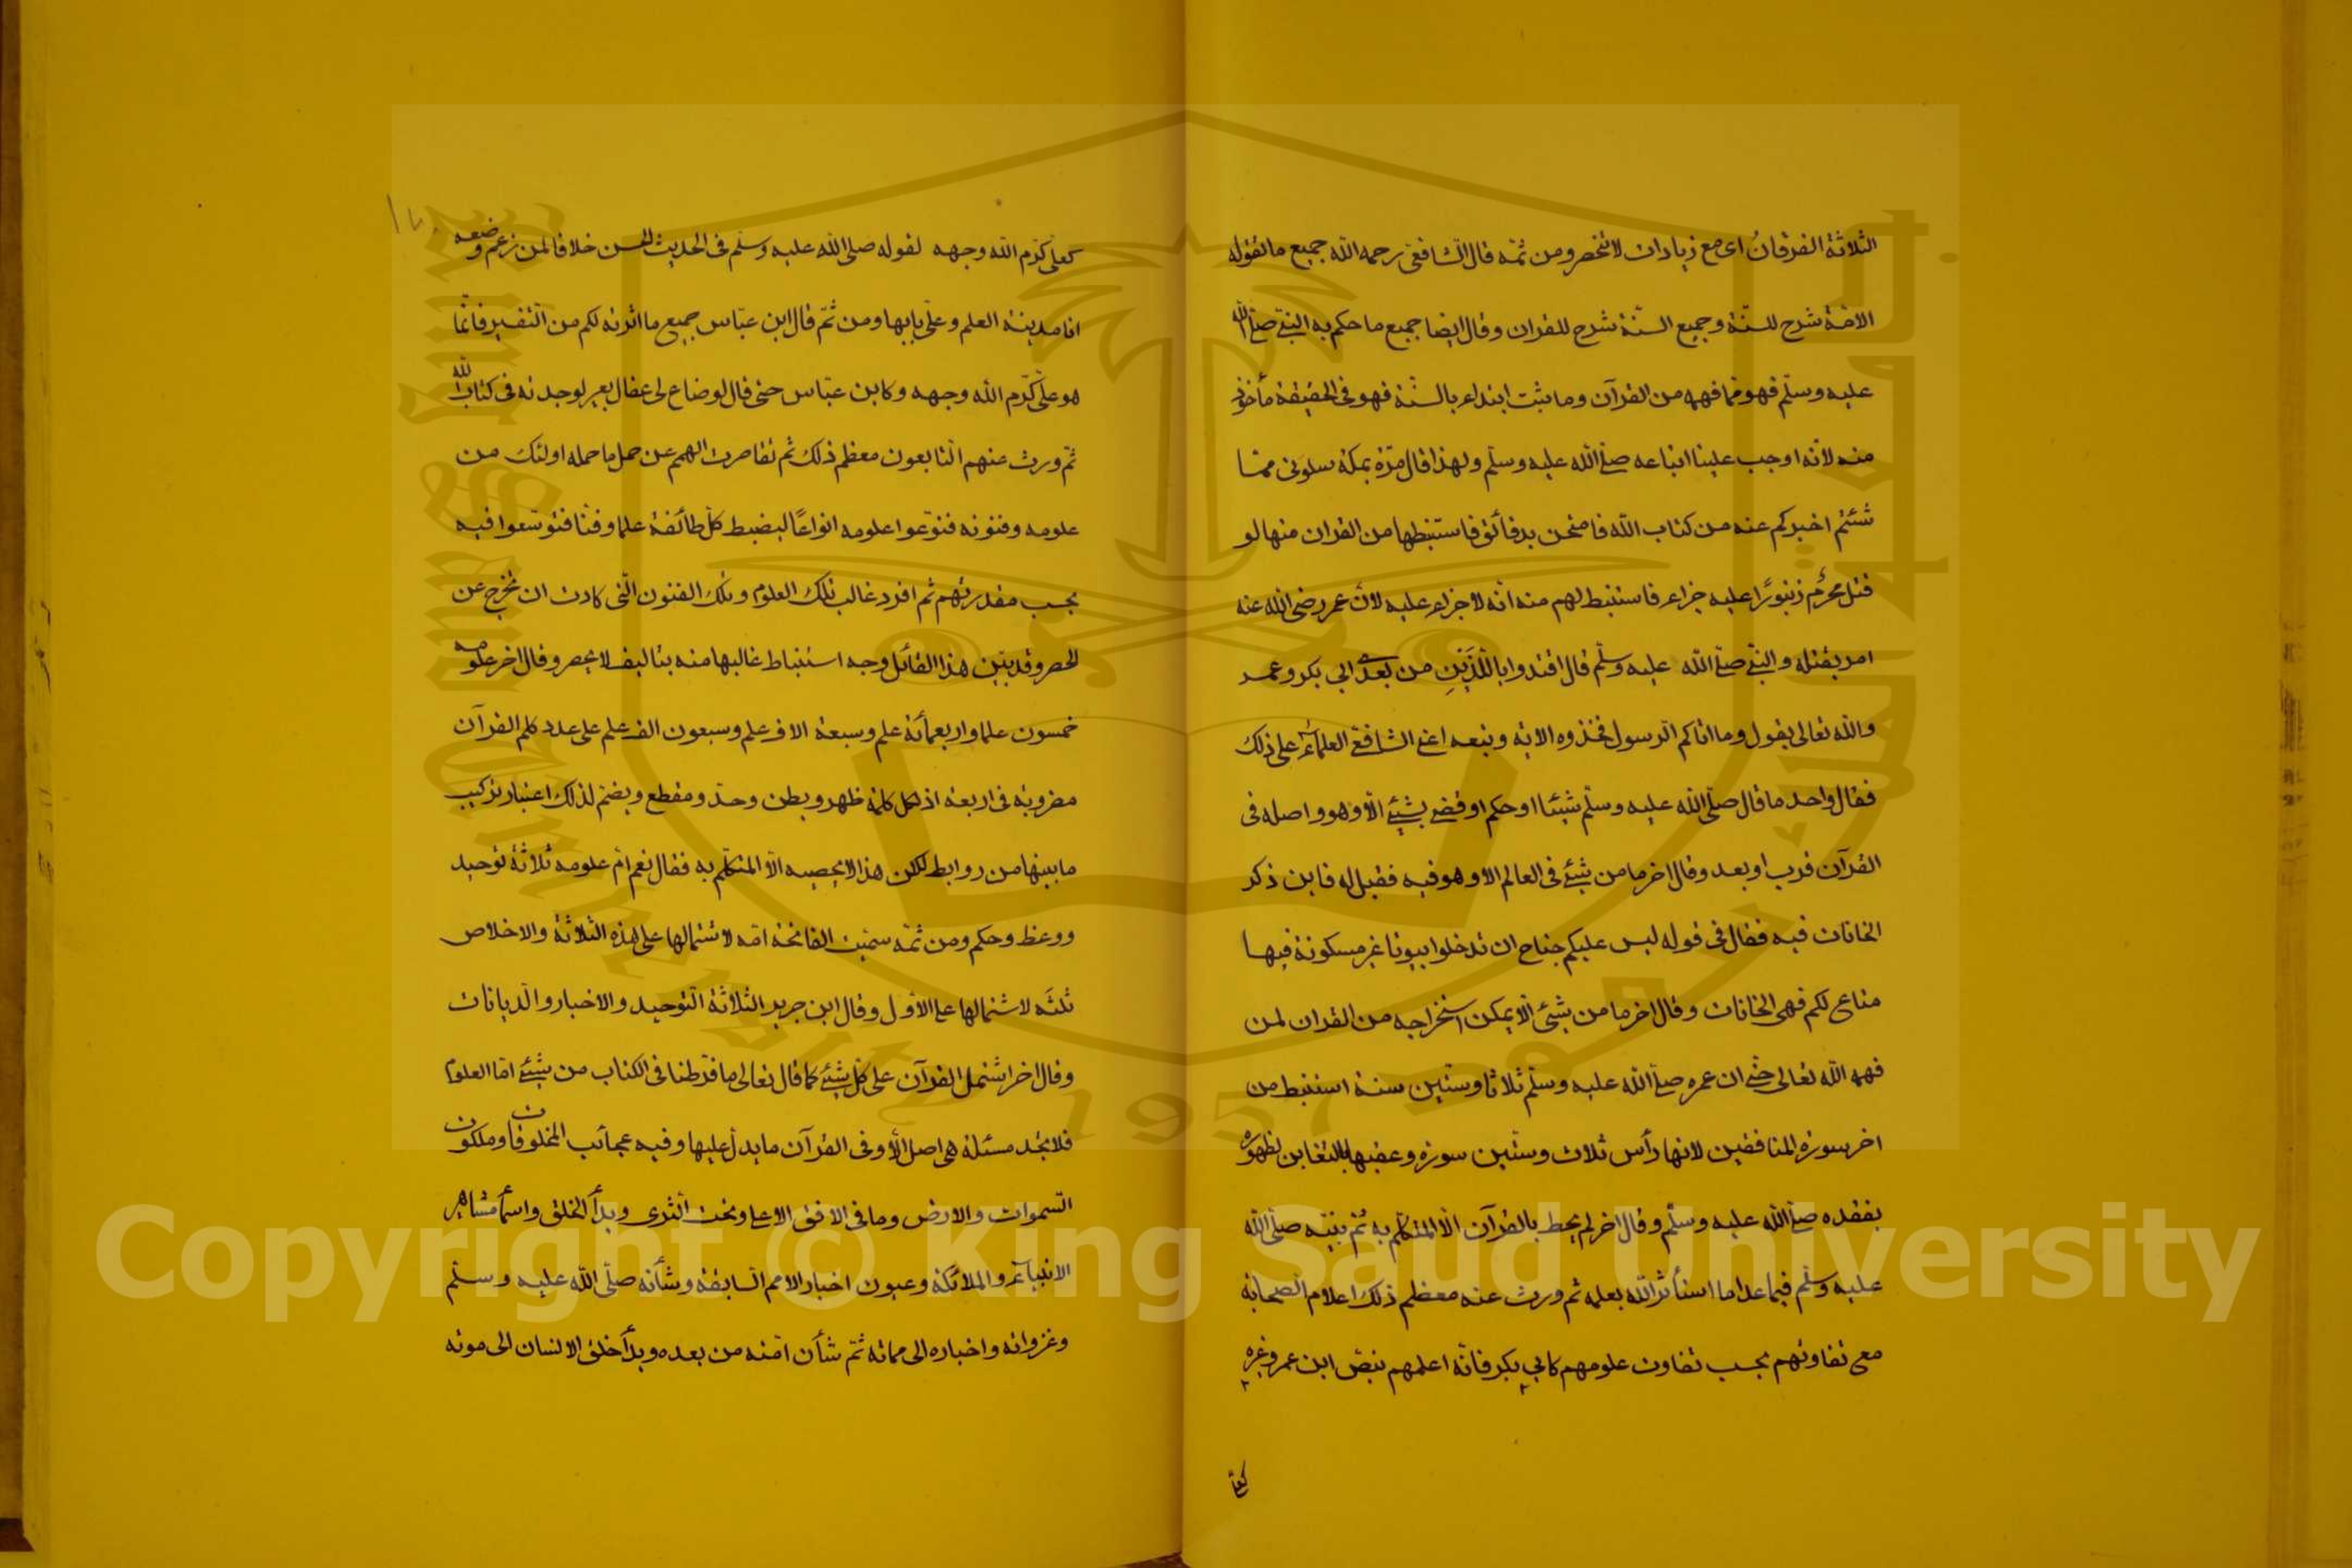 الثلاثة الفرقان اى مع زيادات لا تنحصر ومن ثمه قال الشافعى رحمه الله جميع ما تقوله
الامّة شرح للسنّة وجميع السنّة شرح للقران وقال ايضا جميع ما حكم به النبىّ صلّى الله
عليه وسلّم فهو مما فهمه من القرآن وما يثبت ابتداء بالسنّة فهو فى الحقيقة مأخوذ
منه لانّه اوجب علينا اتباعه صلّى الله عليه وسلّم ولهذا قال مرّة بمكة سلونى ممّا
شئتم اخبركم عنه من كتاب الله فامتحن بدقائق فاستنبطها من القران منها لو
قتل محرم زنبورًا عليه جزاء فاستنبط لهم منه انّه لا جزاء عليه لانّ عمر رضى الله عنه
امر بقتله والنبىّ صلّى الله عليه وسلّم قال اقتدوا باللّذين من بعدى ابى بكر وعمر
والله تعالى يقول وما اتاكم الرّسول فخذوه الاية وتبعه اعنى الشافعىّ العلماءُ على ذلك
فقال واحد ما قال صلّى الله عليه وسلّم شيئا او حكم او قضى بشيئ الّا وهو واصله فى
القرآن قرب او بعد وقال اخر ما من شيئ فى العالم الا وهو فيه فقيل له فاين ذكر
الخانات فيه فقال فى قوله ليس عليكم جناح ان تدخلوا بيوتا غير مسكونة فيها
متاع لكم فهى الخانات وقال اخر ما من شيئ الّا يمكن استخراجه من القران لمن
فهمه الله تعالى حتّى ان عمره صلّى الله عليه وسلّم ثلاثا وستّين سنة استنبط من
اخر سورة المنافقين لانها رأس ثلاث وستّين سورة وعقبها بالتغابن لظهوره
بفقده صلّى الله عليه وسلّم وقال اخر لم يحط بالقرآن الّا المتكلّم به ثمّ نبيّه صلّى الله
عليه وسلّم فيما عدا ما استأثر الله بعلمه ثم ورث عنه معظم ذلك اعلام الصحابة
مع تفاوتهم بحسب تفاوت علومهم كابى بكر فانّه اعلمهم بنصّ ابن عمر وغيره
كعلى
كعلى كرّم الله وجهه لقوله صلى الله عليه وسلّم فى الحديث الحسن خلافا لمن زعم وضعه
انا مدينة العلم وعلىّ بابها ومن ثمّ قال ابن عبّاس جميع ما اثرته لكم من التفسير فانّما
هو علىّ كرّم الله وجهه وكابن عبّاس حتى قال لو ضاع لى عقال بعير لوجدته فى كتاب الله
ثمّ ورث عنهم التابعون معظم ذلك ثم تقاصرت الهمم عن حمل ما حمله اولئك من
علومه وفنونه فنوّعوا علومه انواعًا ليضبط كلّ طائفة علما وفنّا فتوسّعوا فيه
بحسب مقدرتهم ثم افرد غالب تلك العلوم وتلك الفنون الّتى كادت ان تخرج عن
الحصر وقد بيّن هذا القائل وجه استنباط غالبها منه بتاليف لا تحصر وقال اخر علومه
خمسون علما واربعمائة علم وسبعة الاف علم وسبعون الف علم على عدد كلم القرآن
مضروبة فى اربعة اذ لكل كلمة ظهر وبطن وحدّ ومقطع ويضمّ لذلك اعتبار تركيب
ما بينها من روابط لكن هذا لا يحصيه الّا المتكلّم به فقال نعم امّ علومه ثلاثة توحيد
ووعظ وحكم ومن ثمّه سمّيت الفاتحة امّه لاشتمالها على هذه الثلاثة والاخلاص
ثلثَه لاشتمالها على الاوّل وقال ابن جرير الثلاثة التوحيد والاخبار والديانات
وقال اخر اشتمل القرآن على كلّ شيئ كما قال تعالى ما فرّطنا فى الكتاب من شيئ امّا العلوم
فلا تجد مسئلة هى اصل الّا وفى القرآن ما يدلّ عليها وفيه عجائب المخلوقات وملكوت
السّموات والارض وما فى الافق الاعلى وتحت الثرى وبدأ الخلق واسمأ مشاهير
الانبيآء والملائكة وعيون اخبار الامم السابقة وشأنه صلّى الله عليه وسلّم
وغزواته واخباره الى مماته ثمّ شأن امّته من بعده وبدأ خلق الانسان الى موته
King Saud University
1957
Copyright © King Saud University